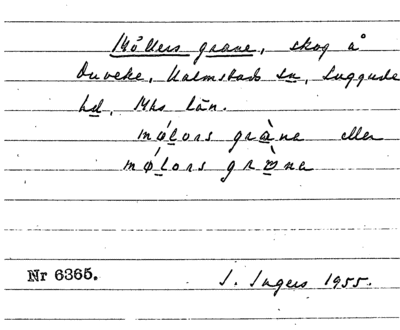 Möllers grane, skog å
Duveke, Halmstads sn, Luggude
hd, Mhs län.
mǿlors gràna eller
mǿlors grɒ̀na
Nr 6365. I. Ingers 1955.